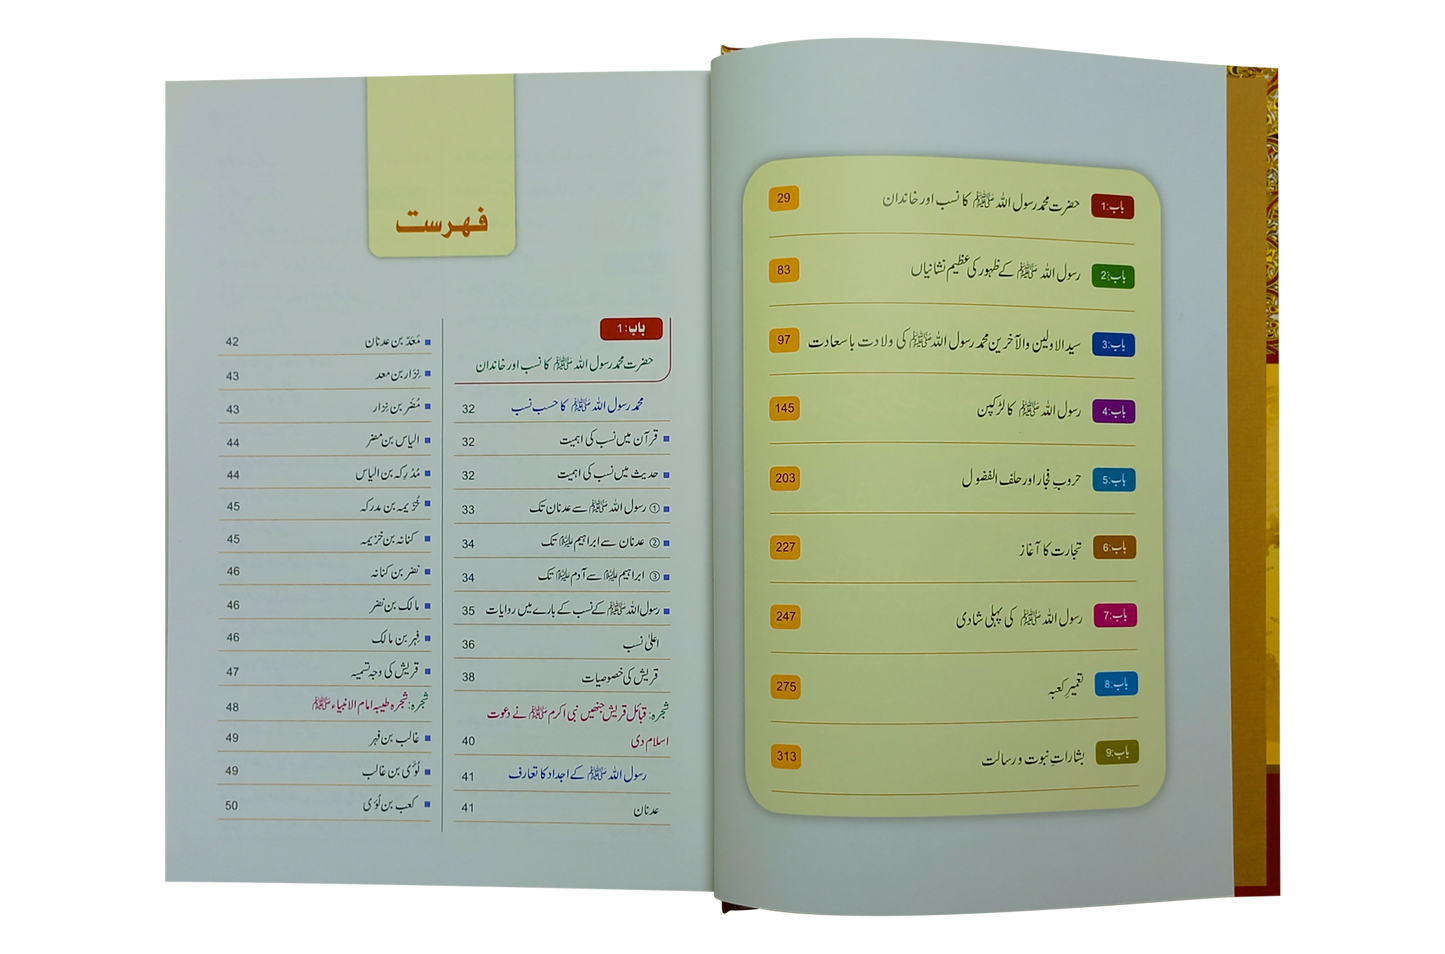 باب:1 حضرت محمد رسول اللہ ﷺ کا نسب اور خاندان 29
باب:2 رسول اللہ ﷺ کے ظہور کی عظیم نشانیاں 83
باب:3 سید الاولین والآخرین محمد رسول اللہ ﷺ کی ولادت باسعادت 97
باب:4 رسول اللہ ﷺ کا لڑکپن 145
باب:5 حروبِ فجار اور حلف الفضول 203
باب:6 تجارت کا آغاز 227
باب:7 رسول اللہ ﷺ کی پہلی شادی 247
باب:8 تعمیرِ کعبہ 275
باب:9 بشاراتِ نبوت و رسالت 313
فہرست
باب:1
حضرت محمد رسول اللہ ﷺ کا نسب اور خاندان
محمد رسول اللہ ﷺ کا حسب نسب 32
قرآن میں نسب کی اہمیت 32
حدیث میں نسب کی اہمیت 32
① رسول اللہ ﷺ سے عدنان تک 33
② عدنان سے ابراہیم علیہ السلام تک 34
③ ابراہیم علیہ السلام سے آدم علیہ السلام تک 34
رسول اللہ ﷺ کے نسب کے بارے میں روایات 35
اعلیٰ نسب 36
قریش کی خصوصیات 38
شجرہ: قبائل قریش جنھیں نبی اکرم ﷺ نے دعوت
اسلام دی 40
رسول اللہ ﷺ کے اجداد کا تعارف 41
عدنان 41
مُعَدّ بن عدنان 42
نِزار بن معد 43
مُضَر بن نِزار 43
الیاس بن مضر 44
مُدْرِکہ بن الیاس 44
خُزَیمہ بن مدرکہ 45
کنانہ بن خزیمہ 45
نضر بن کنانہ 46
مالک بن نضر 46
فِہر بن مالک 46
قریش کی وجہ تسمیہ 47
شجرہ: شجرہ طیبہ امام الانبیاء ﷺ 48
غالب بن فہر 49
لُؤَی بن غالب 49
کعب بن لُؤَی 50